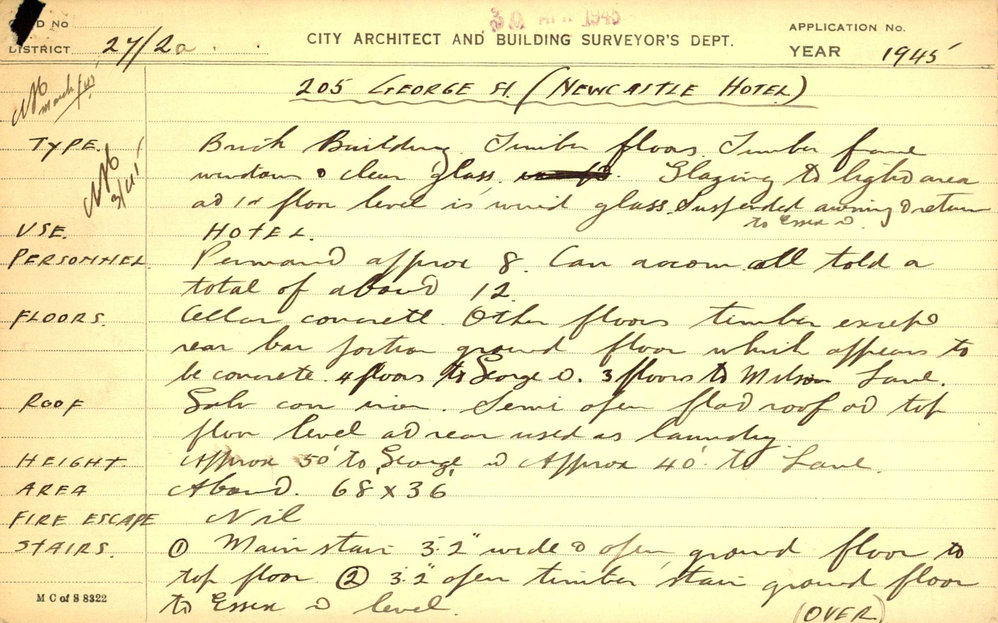 D No
DISTRICT. 27/2a
30 1945
CITY ARCHITECT AND BUILDING SURVEYOR'S DEPT.
APPLICATION No.
YEAR 1945
205 GEORGE St. (NEWCASTLE HOTEL)
March/41
3/41
TYPE. Brick Building. Timber floors. Timber frame
windows & clear glass. Glazing to light area
at 1st floor level is wired glass. Suspended awning & return
to Essex St.
USE. HOTEL.
PERSONNEL. Permanent approx 8. Can accom. all told a
total of about 12.
FLOORS. Cellar concrete. Other floors timber except
rear bar portion ground floor which appears to
be concrete. 4 floors to George St. 3 floors to Milson Lane.
ROOF Galv corr iron. Semi open flat roof at top
floor level at rear used as laundry.
HEIGHT Approx 50' to George St Approx 40' to Lane.
AREA About. 68' x 36'
FIRE ESCAPE Nil
STAIRS. ① Main stair 3'.2" wide & open ground floor to
top floor ② 3'.2" open timber stair ground floor
to Essex St level.
M C of S 8322
(OVER)